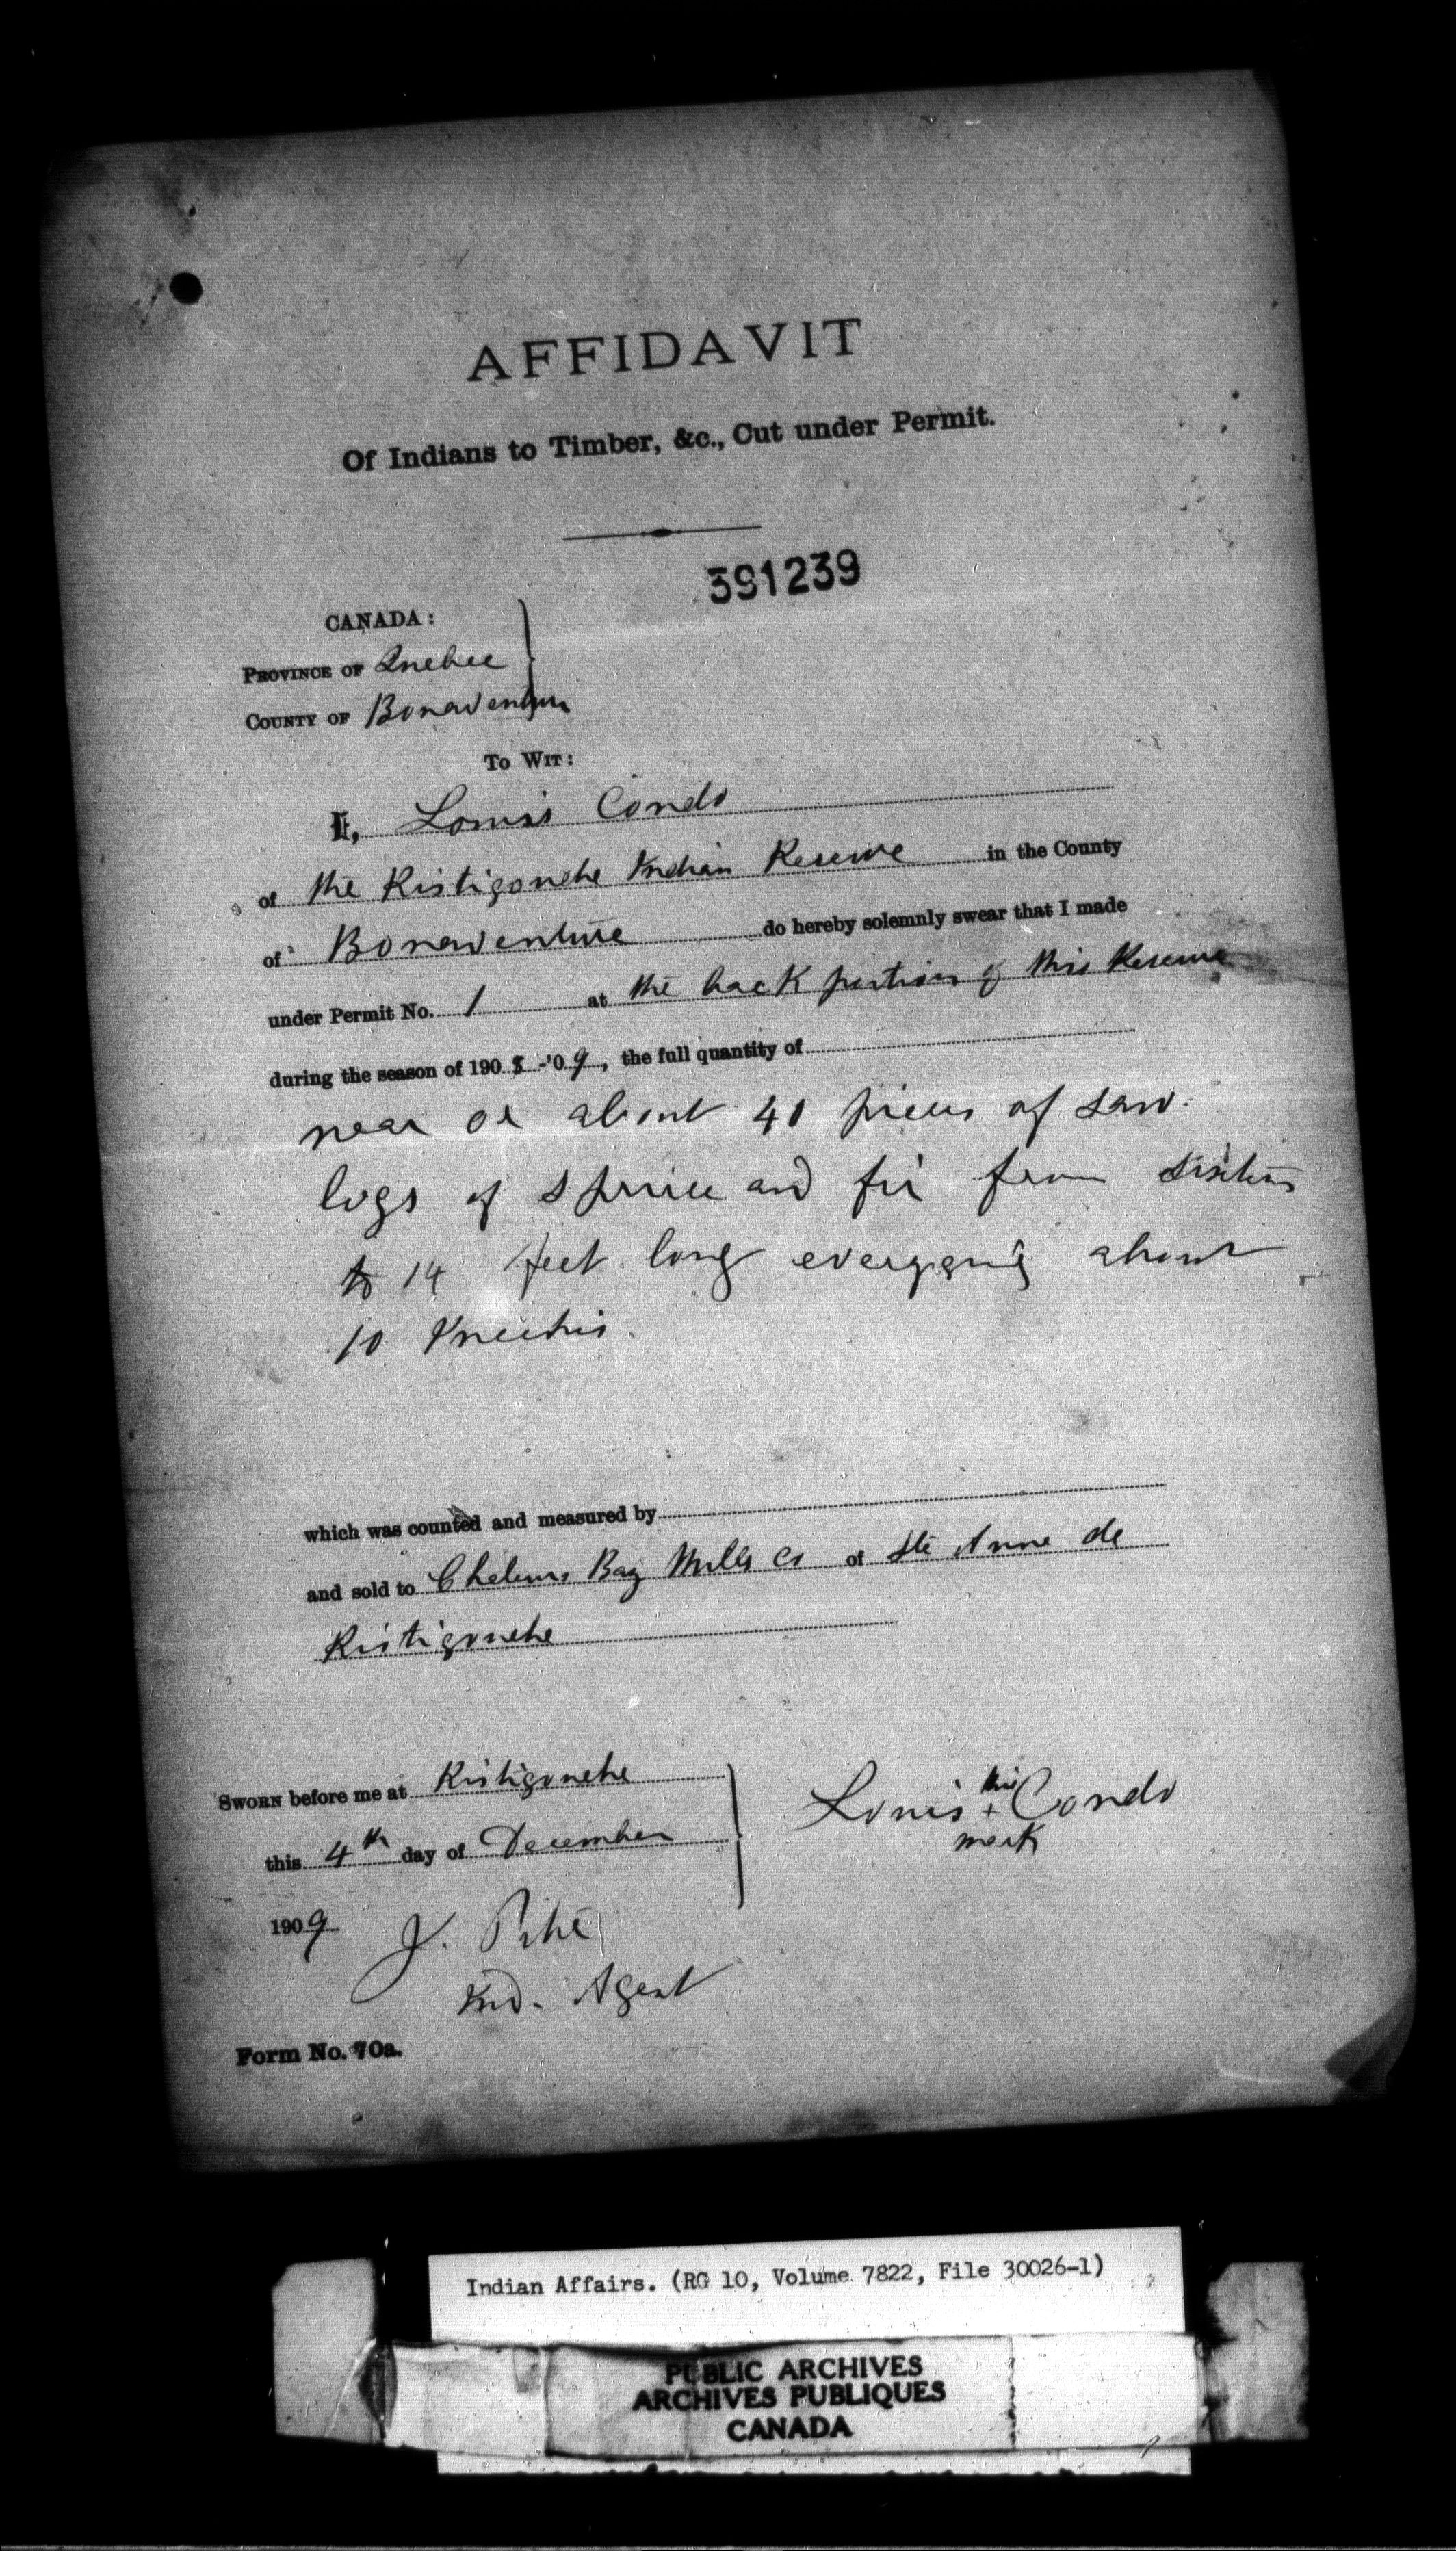 AFFIDAVIT
Of Indians to Timber, &c., Cut under Permit.
391239
CANADA:
PROVINCE OF Quebec
COUNTY OF Bonaventure
TO WIT:
I, Louis Condo
of the Ristigouche Indian Reserve in the County
of Bonaventure do hereby solemnly swear that I made
under Permit No. 1 at the back portion of this Reserve
during the season of 1908-'09, the full quantity of
near or about 40 pieces of saw-
logs of spruce and fir from sixteen
to 14 feet long everging about
10 Inches.
which was counted and measured by
and sold to Chaleurs Bay Mills Co of Ste Anne de
Ristigouche
SWORN before me at Ristigouche
this 4th day of December
1909
Louis his + Condo
mark
J. Pitre
Ind. Agent
Form No. 70a.
Indian Affairs. (RG 10, Volume 7822, File 30026-1)
PUBLIC ARCHIVES
ARCHIVES PUBLIQUES
CANADA